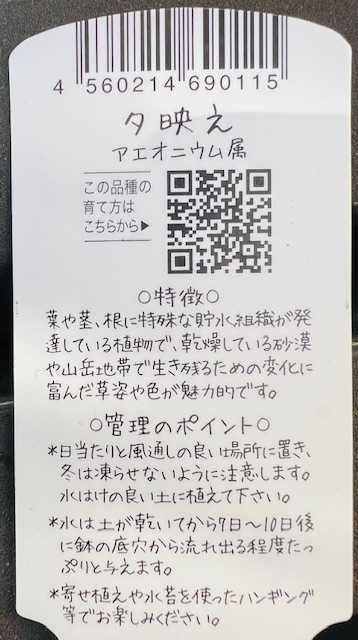 4 560214 690115
夕映え
アエオニウム属
この品種の
育て方は
こちらから▶
○特徴○
葉や茎、根に特殊な貯水組織が発
達している植物で、乾燥している砂漠
や山岳地帯で生き残るための変化に
富んだ草姿や色が魅力的です。
○管理のポイント○
*日当たりと風通しの良い場所に置き、
冬は凍らせないように注意します。
水はけの良い土に植えて下さい。
*水は土が乾いてから7日~10日後
に鉢の底穴から流れ出る程度たっ
ぷりと与えます。
*寄せ植えや水苔を使ったハンギング
等でお楽しみください。